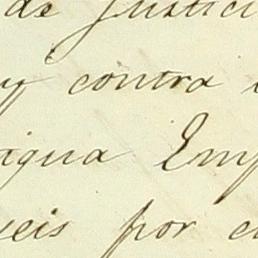 de Justici
y contra
agua Emp
eis por c